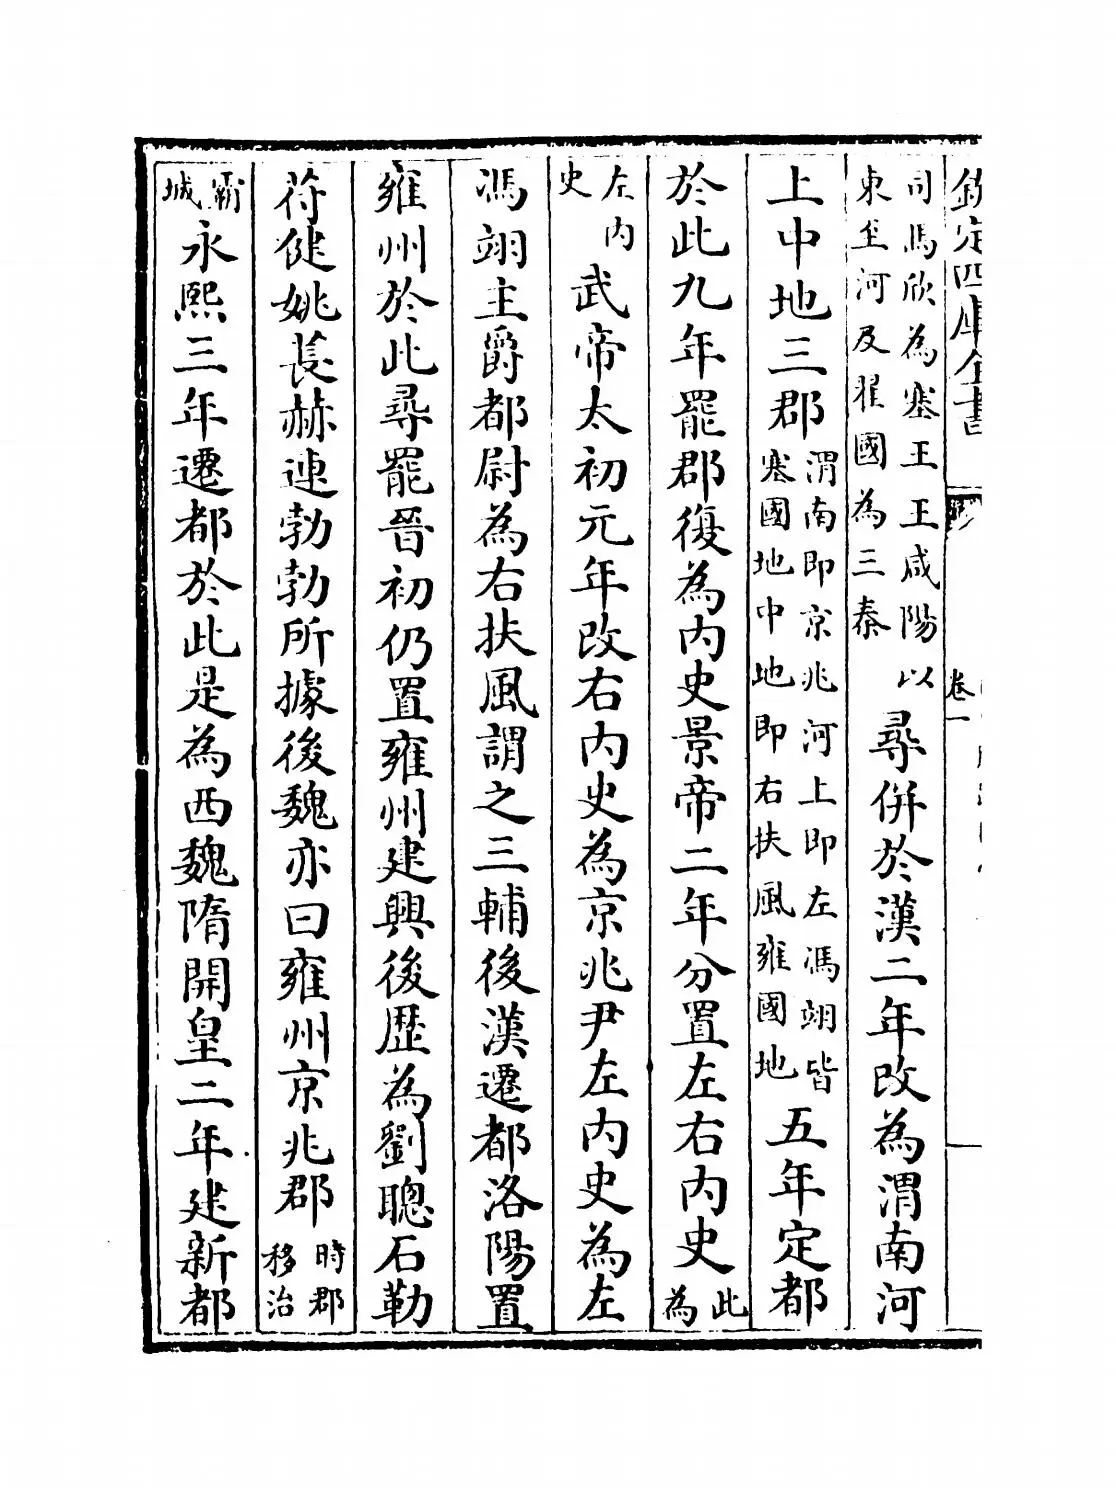 欽定四庫全書 卷一
司馬欣為塞王王咸陽以東至河及翟國為三秦尋併於漢二年改為渭南河
上中地三郡渭南即京兆河上即左馮翊皆塞國地中地即右扶風雍國地五年定都
於此九年罷郡復為内史景帝二年分置左右内史此為
左内史武帝太初元年改右内史為京兆尹左内史為左
馮翊主爵都尉為右扶風謂之三輔後漢遷都洛陽置
雍州於此尋罷晉初仍置雍州建興後歴為劉聰石勒
苻健姚萇赫連勃勃所據後魏亦曰雍州京兆郡時郡移治
霸城永熙三年遷都於此是為西魏隋開皇二年建新都